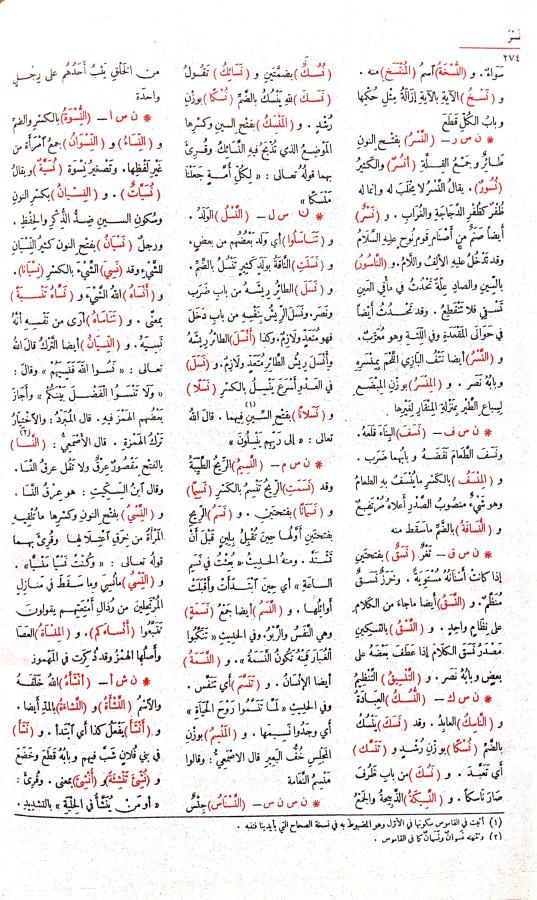 نسر
٢٧٤
سَوَاءٌ . و (النُّسْخَةُ) اسمُ (المُنْتَسَخِ) منه .
و (نَسْخُ) الآيةِ بالآيةِ إزالةُ مِثْلِ حُكْمِها
وبابُ الكُلِّ قَطَعَ
* ن س ر – (النَّسْرُ) بفتح النون
طائرٌ وجمعُ القِلَّةِ (أَنْسُرٌ) والكثيرُ
(نُسُورٌ) . يقالُ النَّسْرُ لا مِخْلَبَ له وإنما له
ظُفُرٌ كظُفُرِ الدَّجاجةِ والغُرابِ . و (نَسْرٌ)
أيضا صَنَمٌ من أَصْنامِ قومِ نُوحٍ عليه السلامُ
وقد تَدْخُلُ عليه الألِفُ واللَّامُ . و (الناسُورُ)
بالسِّينِ والصادِ عِلَّةٌ تَحْدُثُ في مَآقي العَينِ
تَسْقِي فلا تَنْقَطِعُ . وقد تَحْدُثُ أيْضاً
في حَوَالَيِ المَقْعَدَةِ وفي اللِّثَةِ وهو مُعَرَّبٌ .
و (النَّسْرُ) أيضا نَتْفُ البازِي اللَّحْمَ بِمِنْسَرِهِ
وبابُهُ نَصَرَ . و (المِنْسَرُ) بوَزْنِ المِبْضَعِ
لِسِباعِ الطَّيْرِ بمَنْزِلةِ المِنْقارِ لِغَيْرِها
* ن س ف – (نَسَفَ) البِنَاءَ قَلَعَهُ .
ونَسَفَ الطَّعامَ نَفَضَهُ و بابُهما ضَرَبَ .
و (المِنْسَفُ) بالكَسْرِ ما يُنْسَفُ بِهِ الطعامُ
وهو شَيْءٌ مَنْصُوبُ الصَّدْرِ أعلاهُ مُرْتَفِعٌ
و (النُّسَافَةُ) بالضَّمِّ ما سَقَطَ منه
* ن س ق – ثَغْرٌ (نَسَقٌ) بفتحتين
إذا كانت أَسْنانُهُ مُسْتَوِيَةً . وخَرَزٌ نَسَقٌ
مُنَظَّمٌ . و (النَّسَقُ) أيضا ما جاءَ من الكلامِ
على نِظَامٍ واحدٍ . و (النَّسْقُ) بالتسكين
مَصْدَرُ نَسَقَ الكلامَ إذا عَطَفَ بعضَهُ على
بعضٍ وبابُهُ نَصَرَ . و (التَّنْسِيقُ) التَّنْظِيمُ
* ن س ك – (النُّسْكُ) العِبَادَةُ
و (الناسِكُ) العابِدُ . وقد (نَسَكَ) يَنْسُكُ
بالضَّمِّ (نُسْكًا) بوَزْنِ رُشْدٍ و (تَنَسَّكَ)
أي تَعَبَّدَ . و (نَسُكَ) من بابِ ظَرُفَ
صَارَ ناسكاً . و (النَّسِيكَةُ) الذَّبِيحةُ والجَمْعُ
(نُسُكٌ) بضمَّتَينِ و (نَسَائِكُ) تَقُولُ
(نَسَكَ) للهِ يَنْسُكُ بالضَّمِّ (نُسْكًا) بوَزْنِ
رُشْدٍ . و (المَنْسَكُ) بفتح السين وكسرِها
المَوْضِعُ الذي تُذْبَحُ فيه النَّسائكُ وقُرِئَ
بهما قولُهُ تعالى : « لِكُلِّ أُمَّةٍ جَعَلْنَا
مَنْسَكًا »
* ن س ل – (النَّسْلُ) الوَلَدُ .
و (تَنَاسَلُوا) أي وَلَدَ بَعْضُهُم من بعضٍ .
و (نَسَلَتِ) النَّاقَةُ بولَدٍ كَثِيرٍ تَنْسُلُ بالضَّمِّ .
و (نَسَلَ) الطائرُ رِيشَهُ من بابِ ضَرَبَ
ونَصَرَ . ونَسَلَ الرِّيشُ بنَفْسِهِ من بابِ دَخَلَ
فهو مُتَعَدٍّ ولَازِمٌ . وكذا (أَنْسَلَ) الطائرُ رِيشَهُ
وأَنْسَلَ رِيشُ الطَّائِرِ مُتَعَدٍّ ولَازِمٌ . و (نَسَلَ)
في العَدْوِ أَسْرَعَ يَنْسِلُ بالكَسْرِ (نَسَلًا)
و (نَسَلَانًا) (١) بفتحِ السِّينِ فيهما . قالَ اللهُ
تعالى : « إلى رَبِّهِمْ يَنْسِلُونَ »
* ن س م – (النَّسِيمُ) الرِّيحُ الطَّيِّبَةُ
وقد (نَسَمَتِ) الرِّيحُ تَنْسِمُ بالكَسْرِ (نَسِيمًا)
و (نَسَمَانًا) بفتحتين . و (نَسَمُ) الرِّيحِ
بفتحتين أوَّلُها حِينَ تُقْبِلُ بِلِينٍ قَبْلَ أنْ
تَشْتَدَّ . ومنه الحَدِيثُ « بُعِثْتُ في نَسَمِ
الساعةِ » أي حِينَ ابْتَدَأَتْ وأَقْبَلَتْ
أوائلُها . و (النَّسَمُ) أيضا جَمْعُ (نَسَمَةٍ)
وهي النَّفَسُ والرَّبْوُ . وفي الحديثِ « تَنَكَّبُوا
الغُبَارَ فمِنْهُ تَكُونُ النَّسَمَةُ » . و (النَّسَمَةُ)
أيضا الإنْسانُ . و (تَنَسَّمَ) أي تَنَفَّسَ .
وفي الحديثِ « لَمَّا تَنَسَّمُوا رَوْحَ الحَيَاةِ »
أي وَجَدُوا نَسِيمَها . و (المَنْسِمُ) بوزْنِ
المَجْلِسِ خُفُّ البعيرِ قال الأَصْمَعيُّ : وقالُوا
مَنْسِمُ النَّعَامَةِ
* ن س ن س – (النَّسْنَاسُ) جِنْسٌ
من الخَلْقِ يَثِبُ أَحَدُهُم على رِجْلٍ
واحدة
* ن س ا – (النِّسْوَةُ) بالكسرِ والضمِّ
و (النِّسَاءُ) و (النِّسْوَانُ) جمعُ امْرَأَةٍ من
غيرِ لَفْظِها . وتصغيرُ نِسْوَةٍ (نُسَيَّةٌ) ويقالُ
(نُسَيَّاتٌ) . و (النِّسْيانُ) بكسرِ النونِ
وسُكونِ السين ضِدُّ الذِّكْرِ والحِفْظِ .
ورجلٌ (نَسْيانُ) بفتح النون كثيرُ النِّسْيانِ
للشَّيْءِ وقد (نَسِيَ) الشَّيْءَ بالكسْرِ (نِسْيَانًا) .
و (أَنْسَاهُ) اللهُ الشَّيْءَ و (نَسَّاهُ تَنْسِيَةً)
بمعنًى . و (تَنَاسَاهُ) أرَى من نَفْسِهِ أنهُ
نَسِيَهُ . و (النِّسْيانُ) أيضا التَّرْكُ قالَ اللهُ
تعالى : « نَسُوا اللهَ فَنَسِيَهُمْ » وقالَ :
« وَلَا تَنْسَوُا الفَضْلَ بَيْنَكُمْ » وأجازَ
بعضُهم الهَمْزَ فيه . قال المُبَرِّدُ : والاخْتِيارُ
تَرْكُ الهَمْزَةِ . قال الأَصْمَعيُّ : (النَّسَا) (٢)
بالفتحِ مَقْصُورٌ عِرْقٌ ولا تَقُلْ عِرْقُ النَّسَا .
وقال ابنُ السِّكِّيتِ : هو عِرْقُ النَّسَا .
و (النَّسْيُ) بفتح النونِ وكسرِها ما تُلْقِيهِ
المَرْأَةُ من خِرَقِ اعْتِلالِها وقُرِئَ بهما
قولُهُ تعالى : « وكُنْتُ نَسْيًا مَنْسِيًّا » .
و (النِّسْيُ) ما نُسِيَ وما سَقَطَ في مَنازِلِ
المُرْتَحِلِينَ من رُذالِ أَمْتِعَتِهِم يقولون
تَتَبَّعُوا (أَنْسَاءَكم) . و (المِنْسَاةُ) العَصَا
وأَصْلُها الهَمْزُ وقد ذُكِرَتْ في المهموز
* ن ش أ – (أَنْشَأَهُ) اللهُ خَلَقَهُ
والاسْمُ (النَّشْأَةُ) و (النَّشَاءةُ) بالمَدِّ أيضا .
و (أَنْشَأَ) يَفْعَلُ كذا أي ابْتَدَأَ . و (نَشَأَ)
في بني فُلانٍ شَبَّ فيهم وبابُهُ قَطَعَ وخَضَعَ
و (نُشِّئَ تَنْشِئَةً) و (أُنْشِئَ) بمعنًى . وقُرِئَ :
« أَوَمَنْ يُنَشَّأُ في الحِلْيَةِ » بالتشديدِ .
(١) أثبت في القاموس سكونها في الأول وهو المضبوط به في نسخة الصحاح التي بأيدينا فتنبه .
(٢) وتثنيته نسوان ونسيان كما في القاموس .